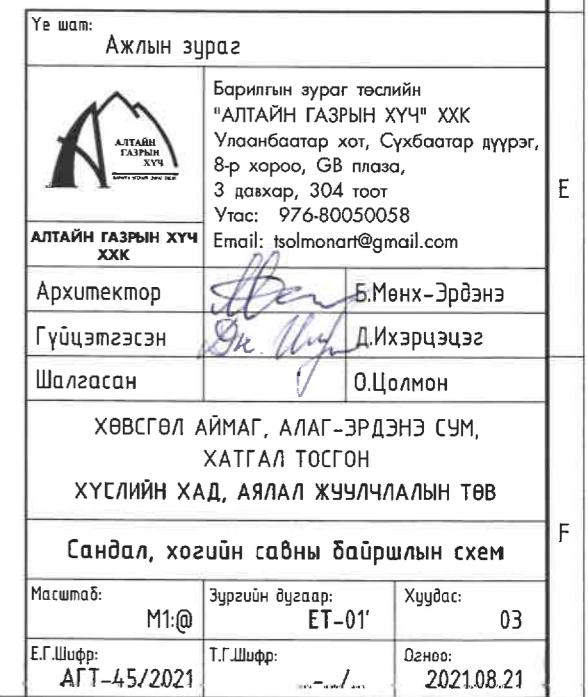 Үе шат:
Ажлын зураг
АЛТАЙН
ГАЗРЫН
ХҮЧ
АЛТАЙН ГАЗРЫН ХҮЧ
ХХК
Барилгын зураг төслийн
"АЛТАЙН ГАЗРЫН ХҮЧ" ХХК
Улаанбаатар хот, Сүхбаатар дүүрэг,
8-р хороо, GB плаза,
3 давхар, 304 тоот
Утас: 976-80050058
Email: tsolmonart@gmail.com
E
Архитектор Б.Мөнх-Эрдэнэ
Гүйцэтгэсэн Д.Ихэрцэцэг
Шалгасан О.Цолмон
ХӨВСГӨЛ АЙМАГ, АЛАГ-ЭРДЭНЭ СУМ,
ХАТГАЛ ТОСГОН
ХҮСЛИЙН ХАД, АЯЛАЛ ЖУУЛЧЛАЛЫН ТӨВ
Сандал, хогийн савны байршлын схем
F
Масштаб: Зургийн дугаар: Хуудас:
М1:@ ЕТ-01' 03
Е.Г.Шифр: Т.Г.Шифр: Огноо:
АГТ-45/2021 _ _ / _ 2021.08.21